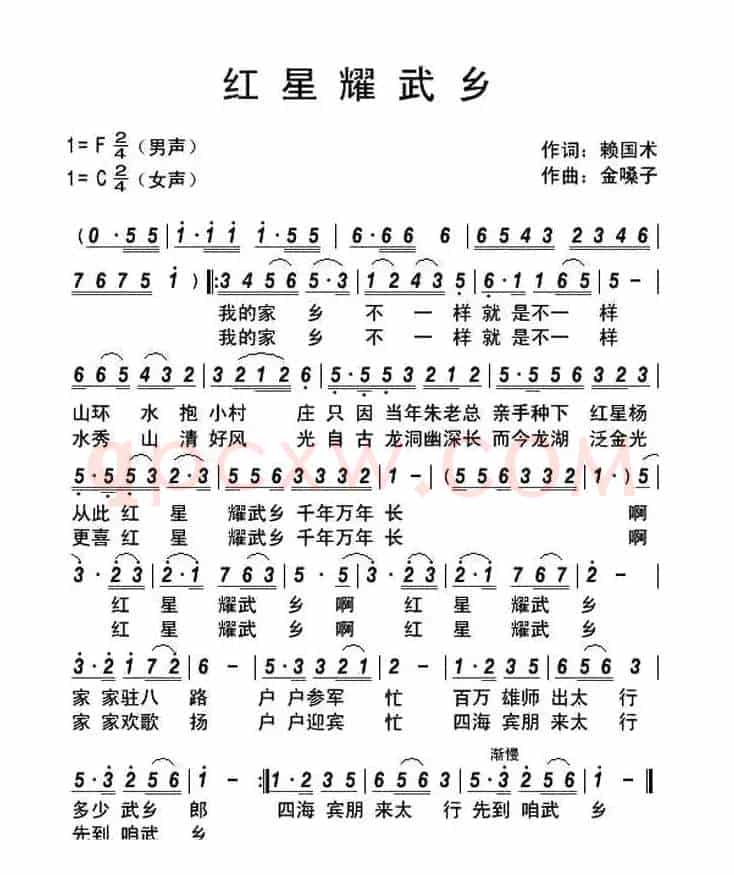 红星耀武乡
1=F 2/4（男声）
作词：赖国术
1=C 2/4（女声）
作曲：金嗓子
（0·55 | 1·11 1·55 | 6·66 6 | 6543 2346 |
7675 1）‖:3456 5·3 | 1243 5 | 6·1 165 | 5 - |
我的家乡 不一样 就是不一样
我的家乡 不一样 就是不一样
665 432 | 3212 6 | 5·55 3212 | 5·556 323 |
山环 水抱小村 庄只因当年朱老总 亲手种下 红星杨
水秀 山清好风 光自古龙洞幽深长 而今龙湖 泛金光
5·553 2·3 | 556 3332 | 1 - |（556 3332 | 1·）5 |
从此红 星 耀武乡 千年万年 长 啊
更喜红 星 耀武乡 千年万年 长 啊
3·23 | 2·1 763 | 5·5 | 3·23 | 2·1 767 | 2 - |
红 星 耀武 乡 啊 红 星 耀武 乡
红 星 耀武 乡 啊 红 星 耀武 乡
3·2 172 | 6 - | 5·3 325 | 2 - | 1·2 35 | 656 3 |
家家驻八 路 户户参军 忙 百万雄师 出太 行
家家欢歌 扬 户户迎宾 忙 四海宾朋 来太 行
渐慢
5·3 256 | 1 - :‖ 1·2 35 | 656 3 | 5·3 256 | 1 - ‖
多少武乡 郎 四海宾朋 来太 行 先到咱武 乡
先到咱武 乡
qpcxw.com